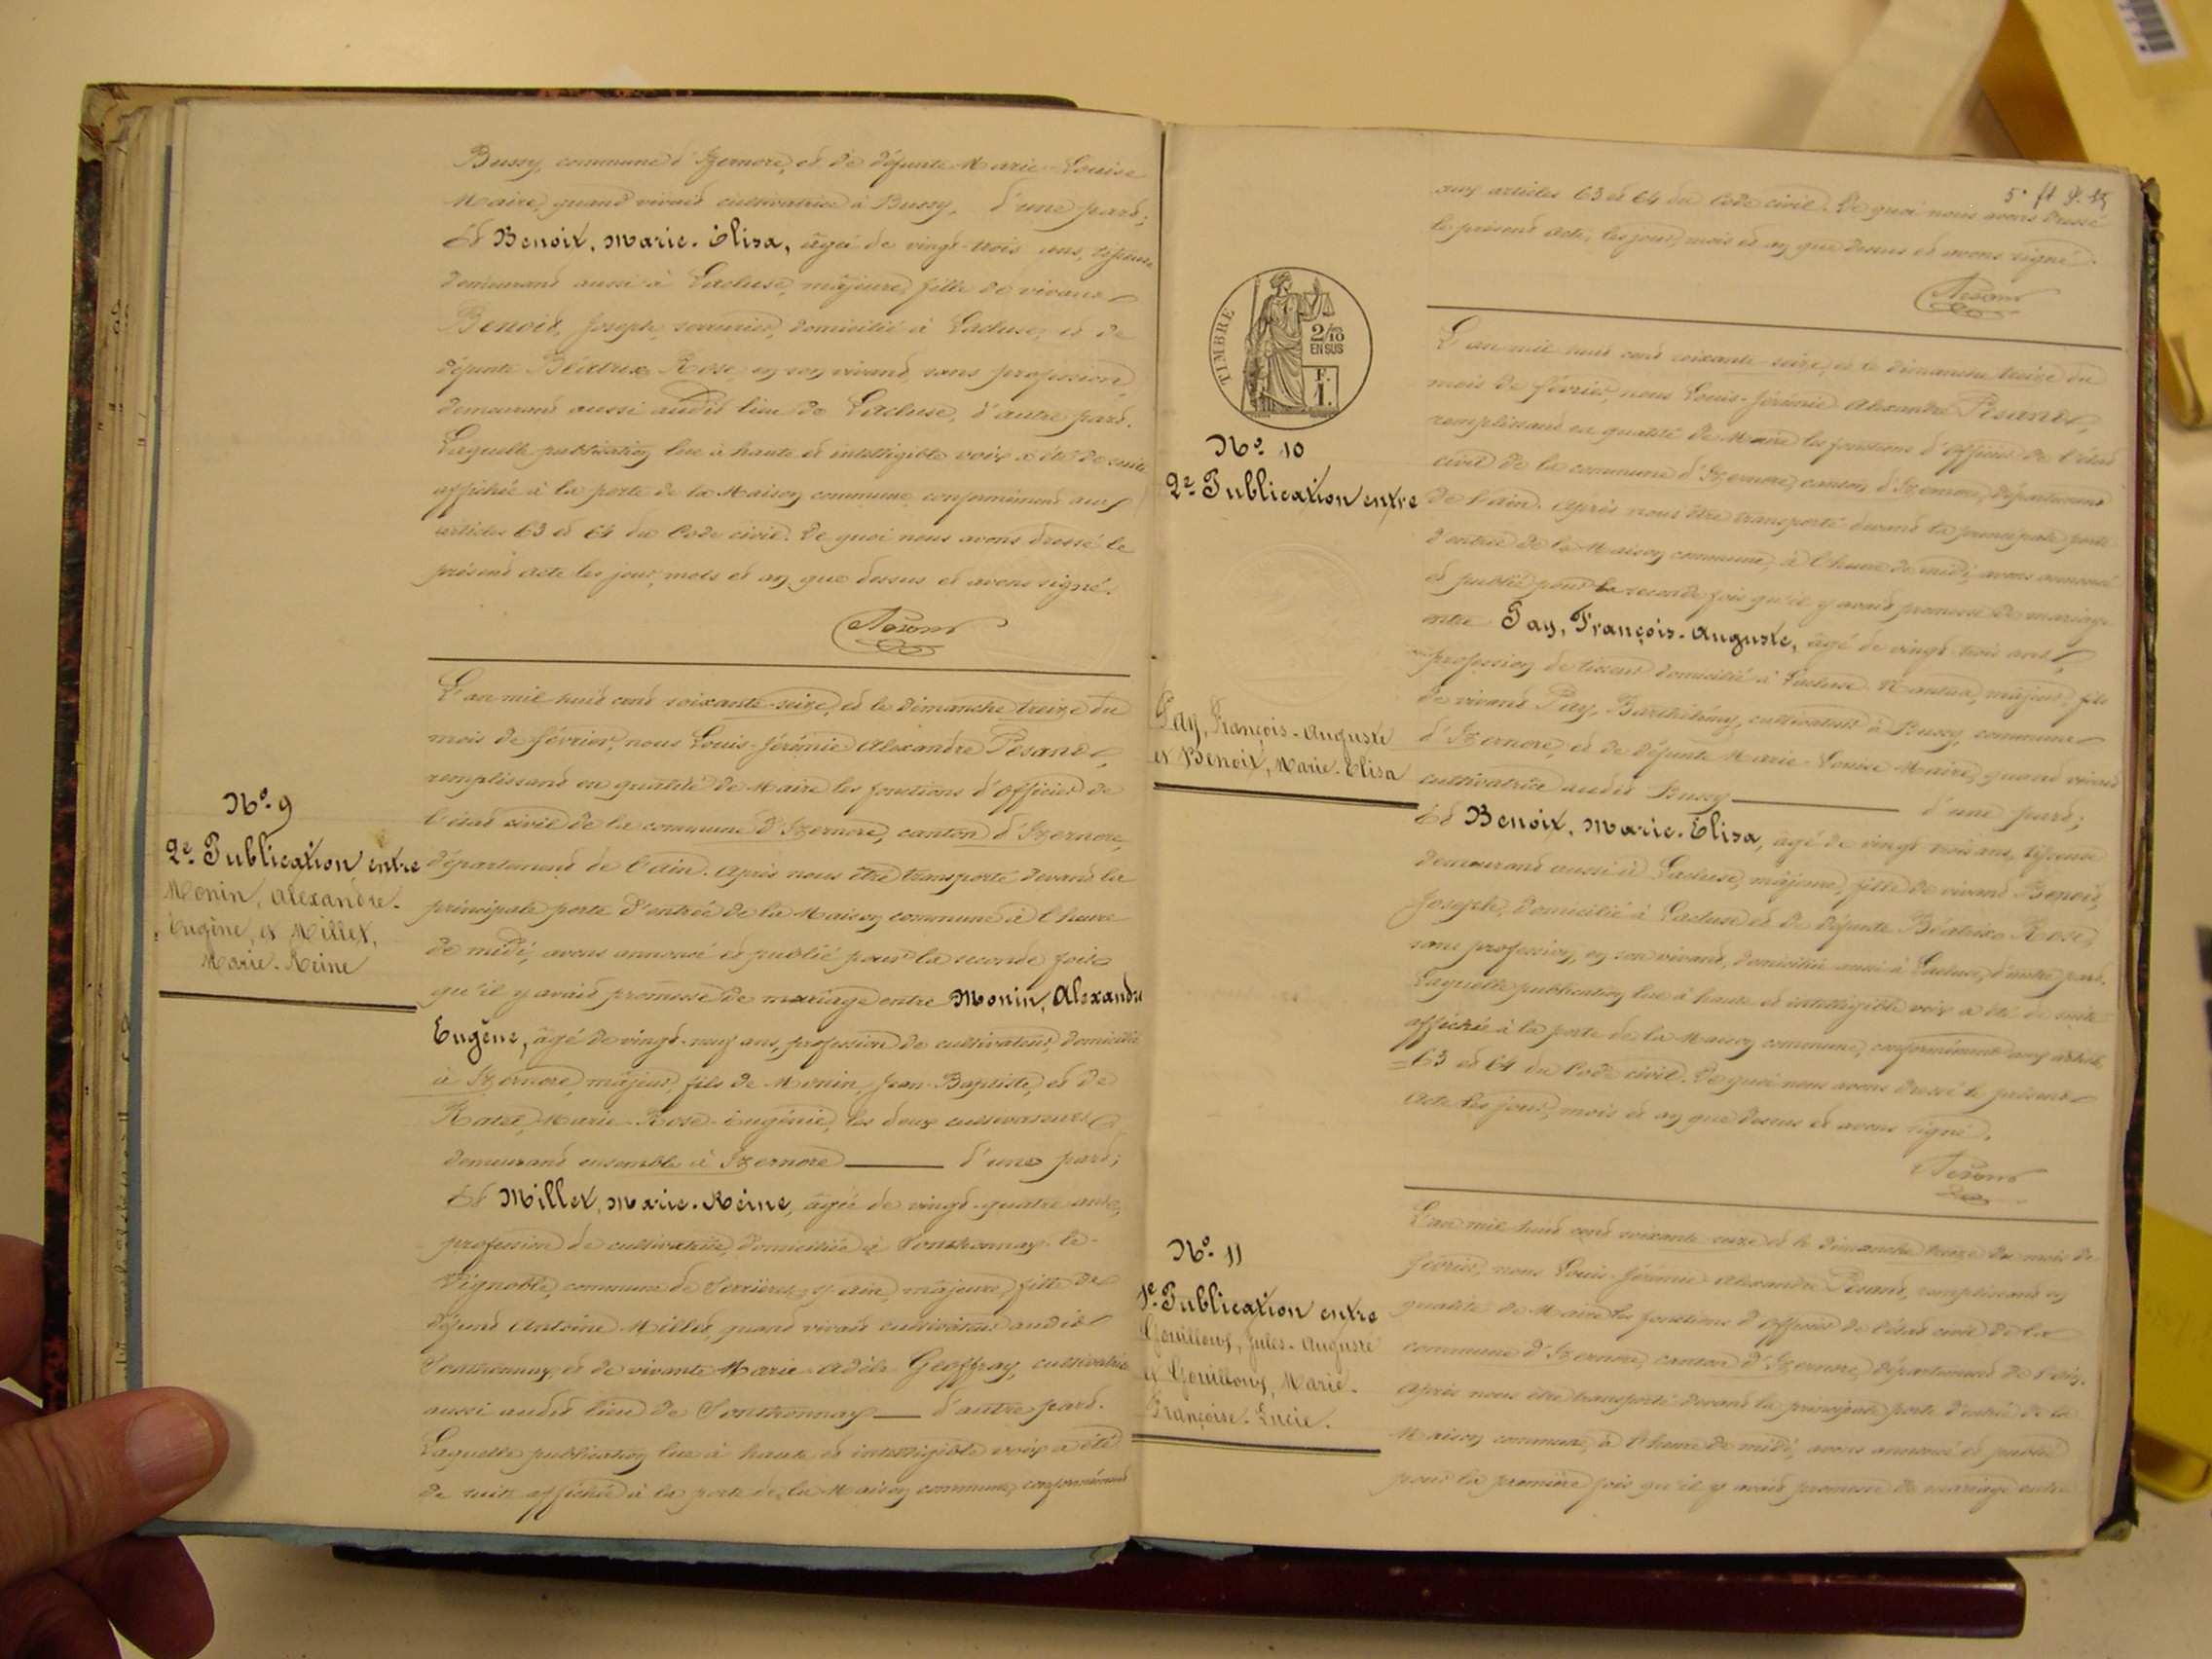 Bussy, commune d'Izernore, et de défunte Marie-Louise
Maire, quand vivait cultivatrice à Bussy, d'une part;
Et Benoit, Marie-Elisa, âgée de vingt-trois ans, tisseuse
demeurant aussi à Lacluse, majeure, fille de vivant
Benoit, Joseph, serrurier, domicilié à Lacluse, et de
défunte Béatrix Rose, en son vivant sans profession,
demeurant aussi audit lieu de Lacluse, d'autre part.
Laquelle publication lue à haute et intelligible voix a été de suite
affichée à la porte de la Maison commune conformément aux
articles 63 et 64 du Code civil. De quoi nous avons dressé le
présent acte les jour, mois et an que dessus et avons signé.
N° 9
2e Publication entre
Monin, Alexandre-
Eugène, et Millet,
Marie-Reine
L'an mil huit cent soixante-seize, et le dimanche treize du
mois de février, nous Louis-Jérémie Alexandre Pesant,
remplissant en qualité de Maire les fonctions d'Officier de
l'état civil de la commune d'Izernore, canton d'Izernore,
département de l'Ain. Après nous être transporté devant la
principale porte d'entrée de la Maison commune à l'heure
de midi, avons annoncé et publié pour la seconde fois
qu'il y avait promesse de mariage entre Monin, Alexandre
Eugène, âgé de vingt-neuf ans, profession de cultivateur, domicilié
à Izernore, majeur, fils de Monin, Jean-Baptiste, et de
Marie-Rose-Eugénie, les deux cultivateurs
demeurant ensemble à Izernore d'une part;
Et Millet, Marie-Reine, âgée de vingt-quatre ans,
profession de cultivatrice, domiciliée à Sonthonnax-le-
Vignoble, commune de Serrières-s-Ain, majeure, fille de
défunt Antoine Millet, quand vivait cultivateur audit
Sonthonnax, et de vivante Marie-Adèle Geoffray, cultivatrice
aussi audit lieu de Sonthonnax d'autre part.
Laquelle publication lue à haute et intelligible voix a été
de suite affichée à la porte de la Maison commune, conformément
5e ft
aux articles 63 et 64 du Code civil. De quoi nous avons dressé
le présent acte, les jour, mois et an que dessus et avons signé.
TIMBRE
2/10
EN SUS
F.
1.
N° 10
2e Publication entre
Pay, François-Auguste
et Benoit, Marie-Elisa
L'an mil huit cent soixante-seize, et le dimanche treize du
mois de février, nous Louis-Jérémie Alexandre Pesant,
remplissant en qualité de Maire les fonctions d'officier de l'état
civil de la commune d'Izernore, canton d'Izernore, département
de l'Ain. Après nous être transporté devant la principale porte
d'entrée de la Maison commune, à l'heure de midi, avons annoncé
et publié pour la seconde fois qu'il y avait promesse de mariage
entre Pay, François-Auguste, âgé de vingt-trois ans,
profession de tisseur domicilié à Lacluse Nantua, majeur, fils
de vivant Pay, Barthélémy, cultivateur à Bussy, commune
d'Izernore, et de défunte Marie-Louise Maire, quand vivait
cultivatrice audit Bussy d'une part;
Et Benoit, Marie-Elisa, âgé de vingt-trois ans, tisseuse
demeurant aussi à Lacluse, majeure, fille de vivant Benoit,
Joseph, domicilié à Lacluse et de défunte Béatrix Rose,
sans profession, en son vivant, domiciliée aussi à Lacluse, d'autre part.
Laquelle publication lue à haute et intelligible voix a été de suite
affichée à la porte de la Maison commune, conformément aux articles
63 et 64 du Code civil. De quoi nous avons dressé le présent
acte les jour, mois et an que dessus et avons signé.
N° 11
1e Publication entre
Gouilloux, Jules-Auguste
et Gouilloux, Marie-
Françoise-Lucie.
L'an mil huit cent soixante-seize et le dimanche treize du mois de
février, nous Louis-Jérémie Alexandre Pesant, remplissant en
qualité de Maire les fonctions d'officier de l'état civil de la
commune d'Izernore, canton d'Izernore, département de l'Ain.
Après nous être transporté devant la principale porte d'entrée de la
Maison commune, à l'heure de midi, avons annoncé et publié
pour la première fois qu'il y avait promesse de mariage entre